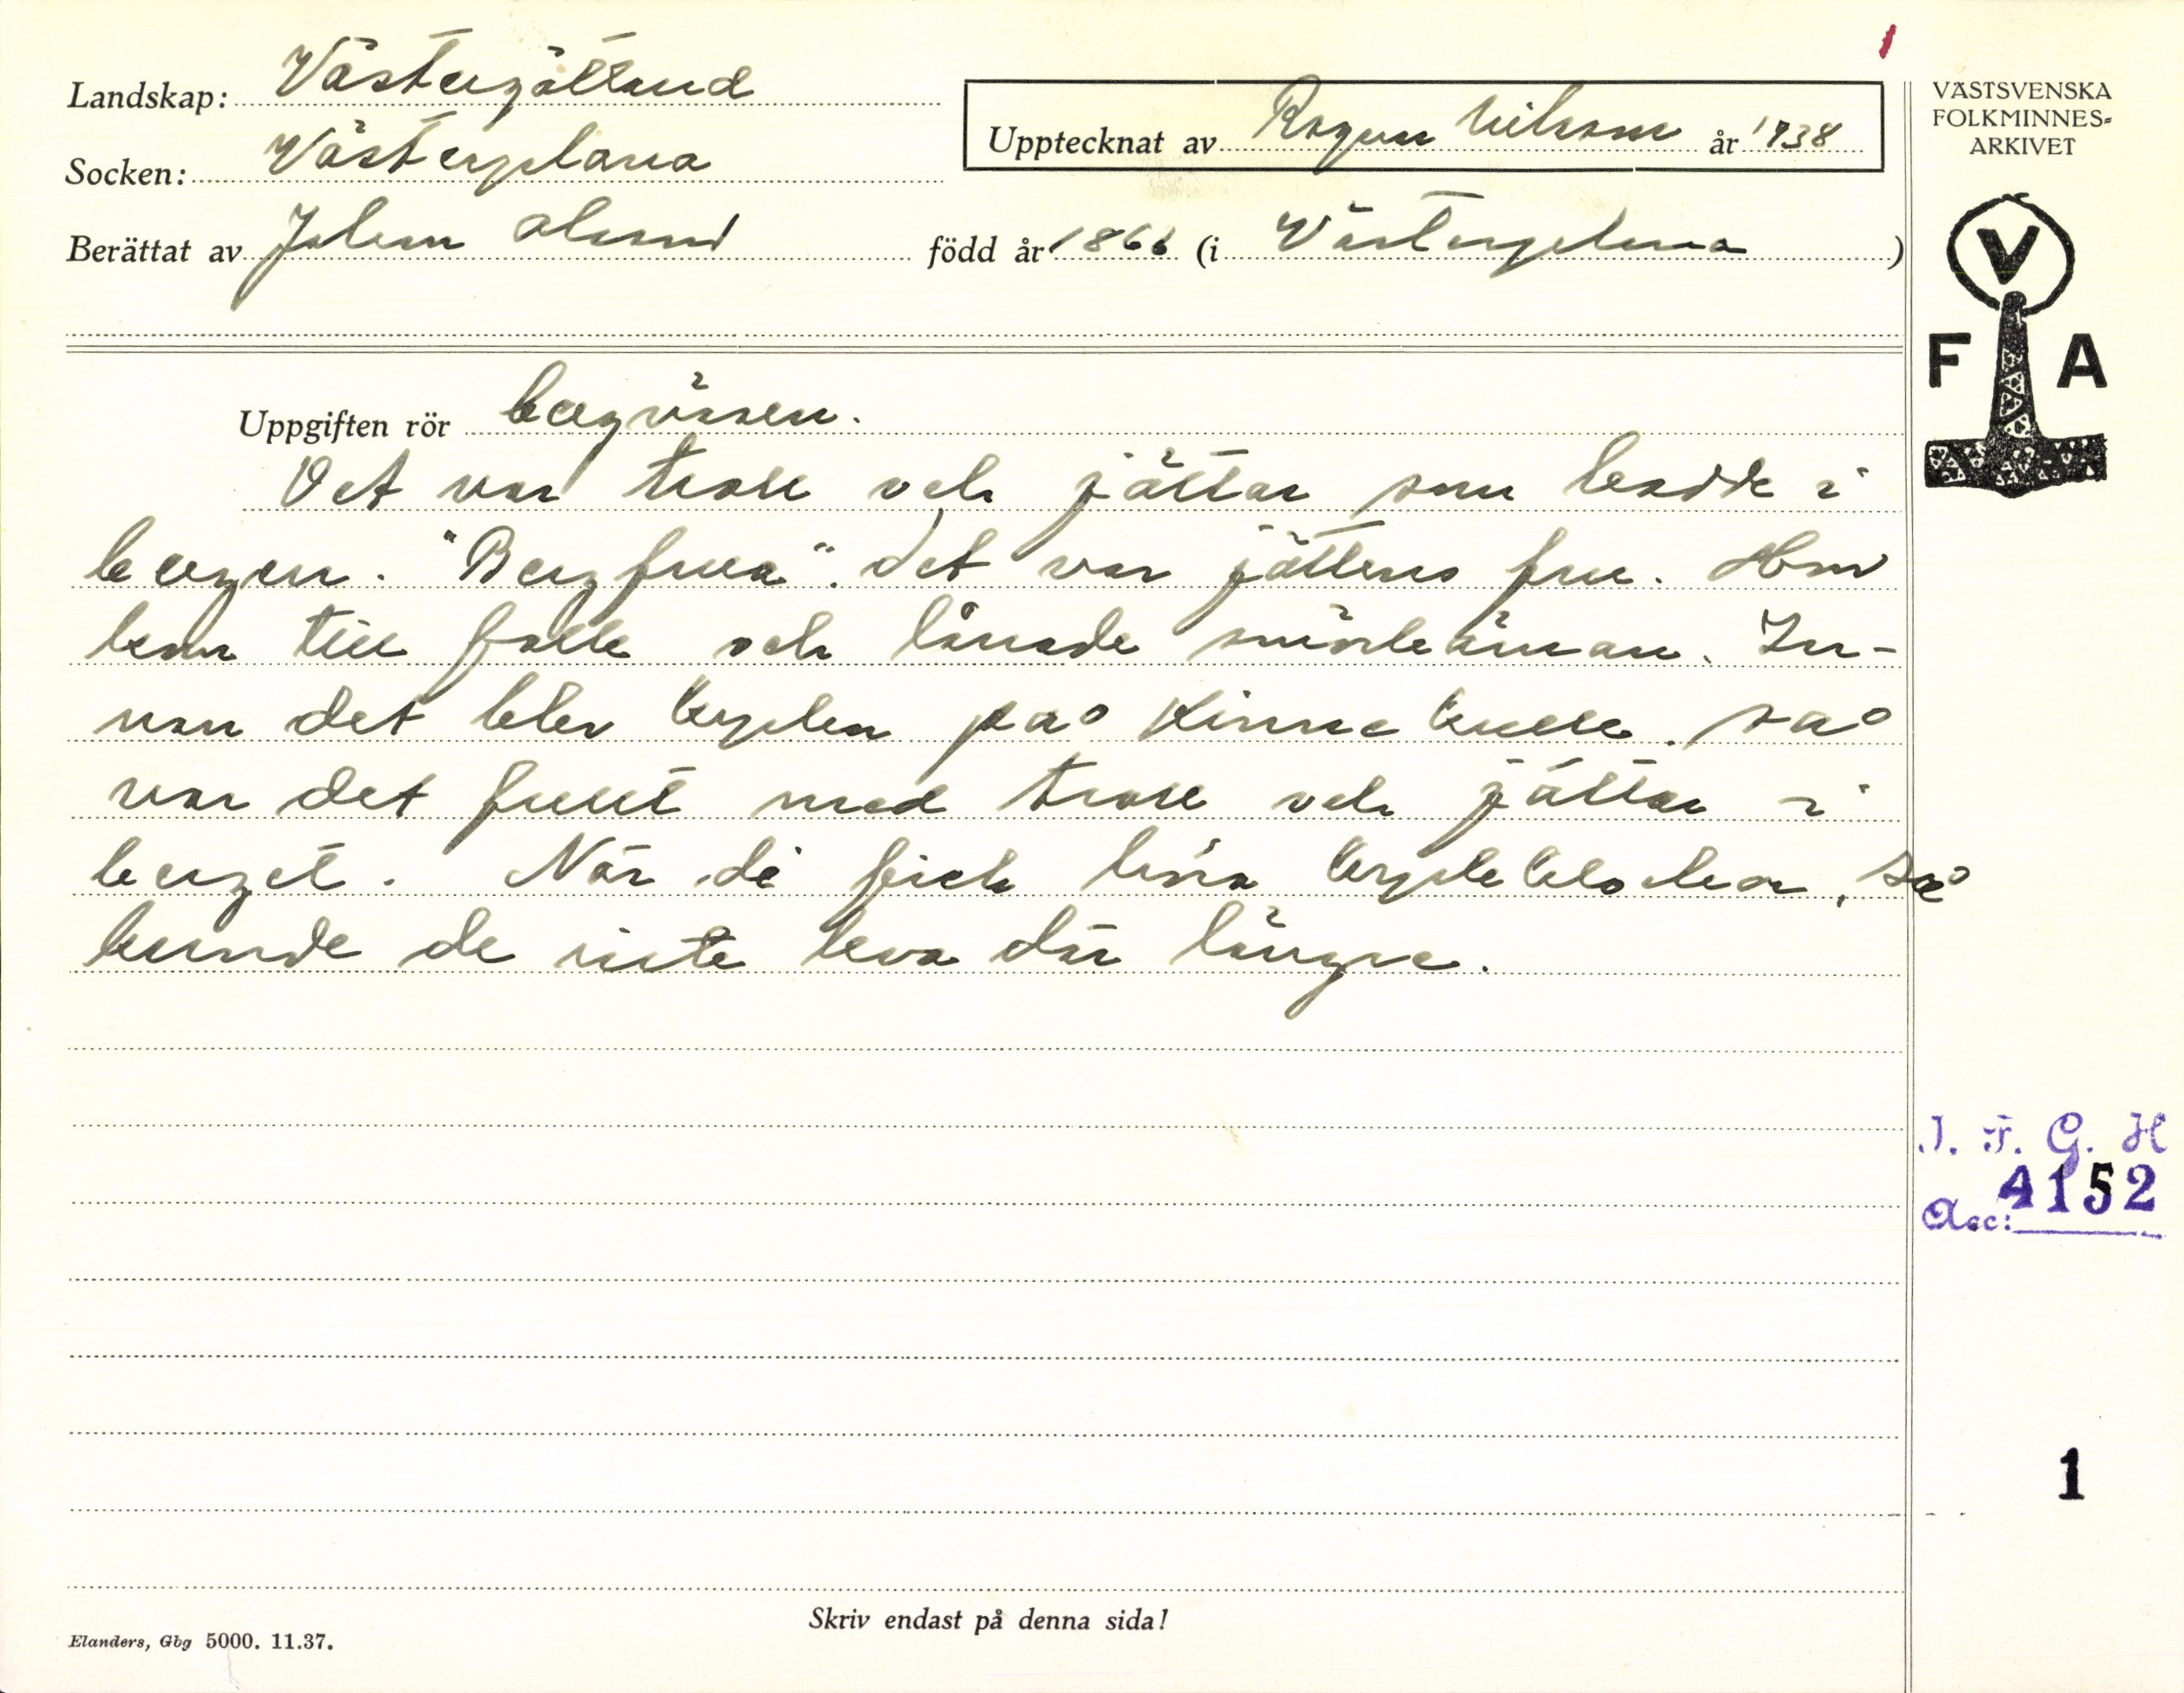 1
Landskap: Västergötland
Socken: Västerplana
Upptecknat av Ragnar Nilsson år 1938
Berättat av Johan Olsson född år 1866 (i Västerplana)
VÄSTSVENSKA
FOLKMINNES-
ARKIVET
V
F A
Uppgiften rör bergväsen.
Det var troll och jättar som bodde i
bergen. "Bergfrua". det var jättens fru. Hon
kom till folk och lånade smörkärnan. In-
nan det blev kyrkor på Kinnekulle. så
var det fullt med troll och jättar i
berget. När de fick höra kyrkklockor, så
kunde de inte leva där längre.
I. F. G. H
Acc: 4152
1
Skriv endast på denna sida!
Elanders, Gbg 5000. 11.37.